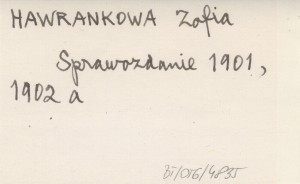 HAWRANKOWA Zofia
Sprawozdanie 1901,
1902 a
BJ/DIG/4835